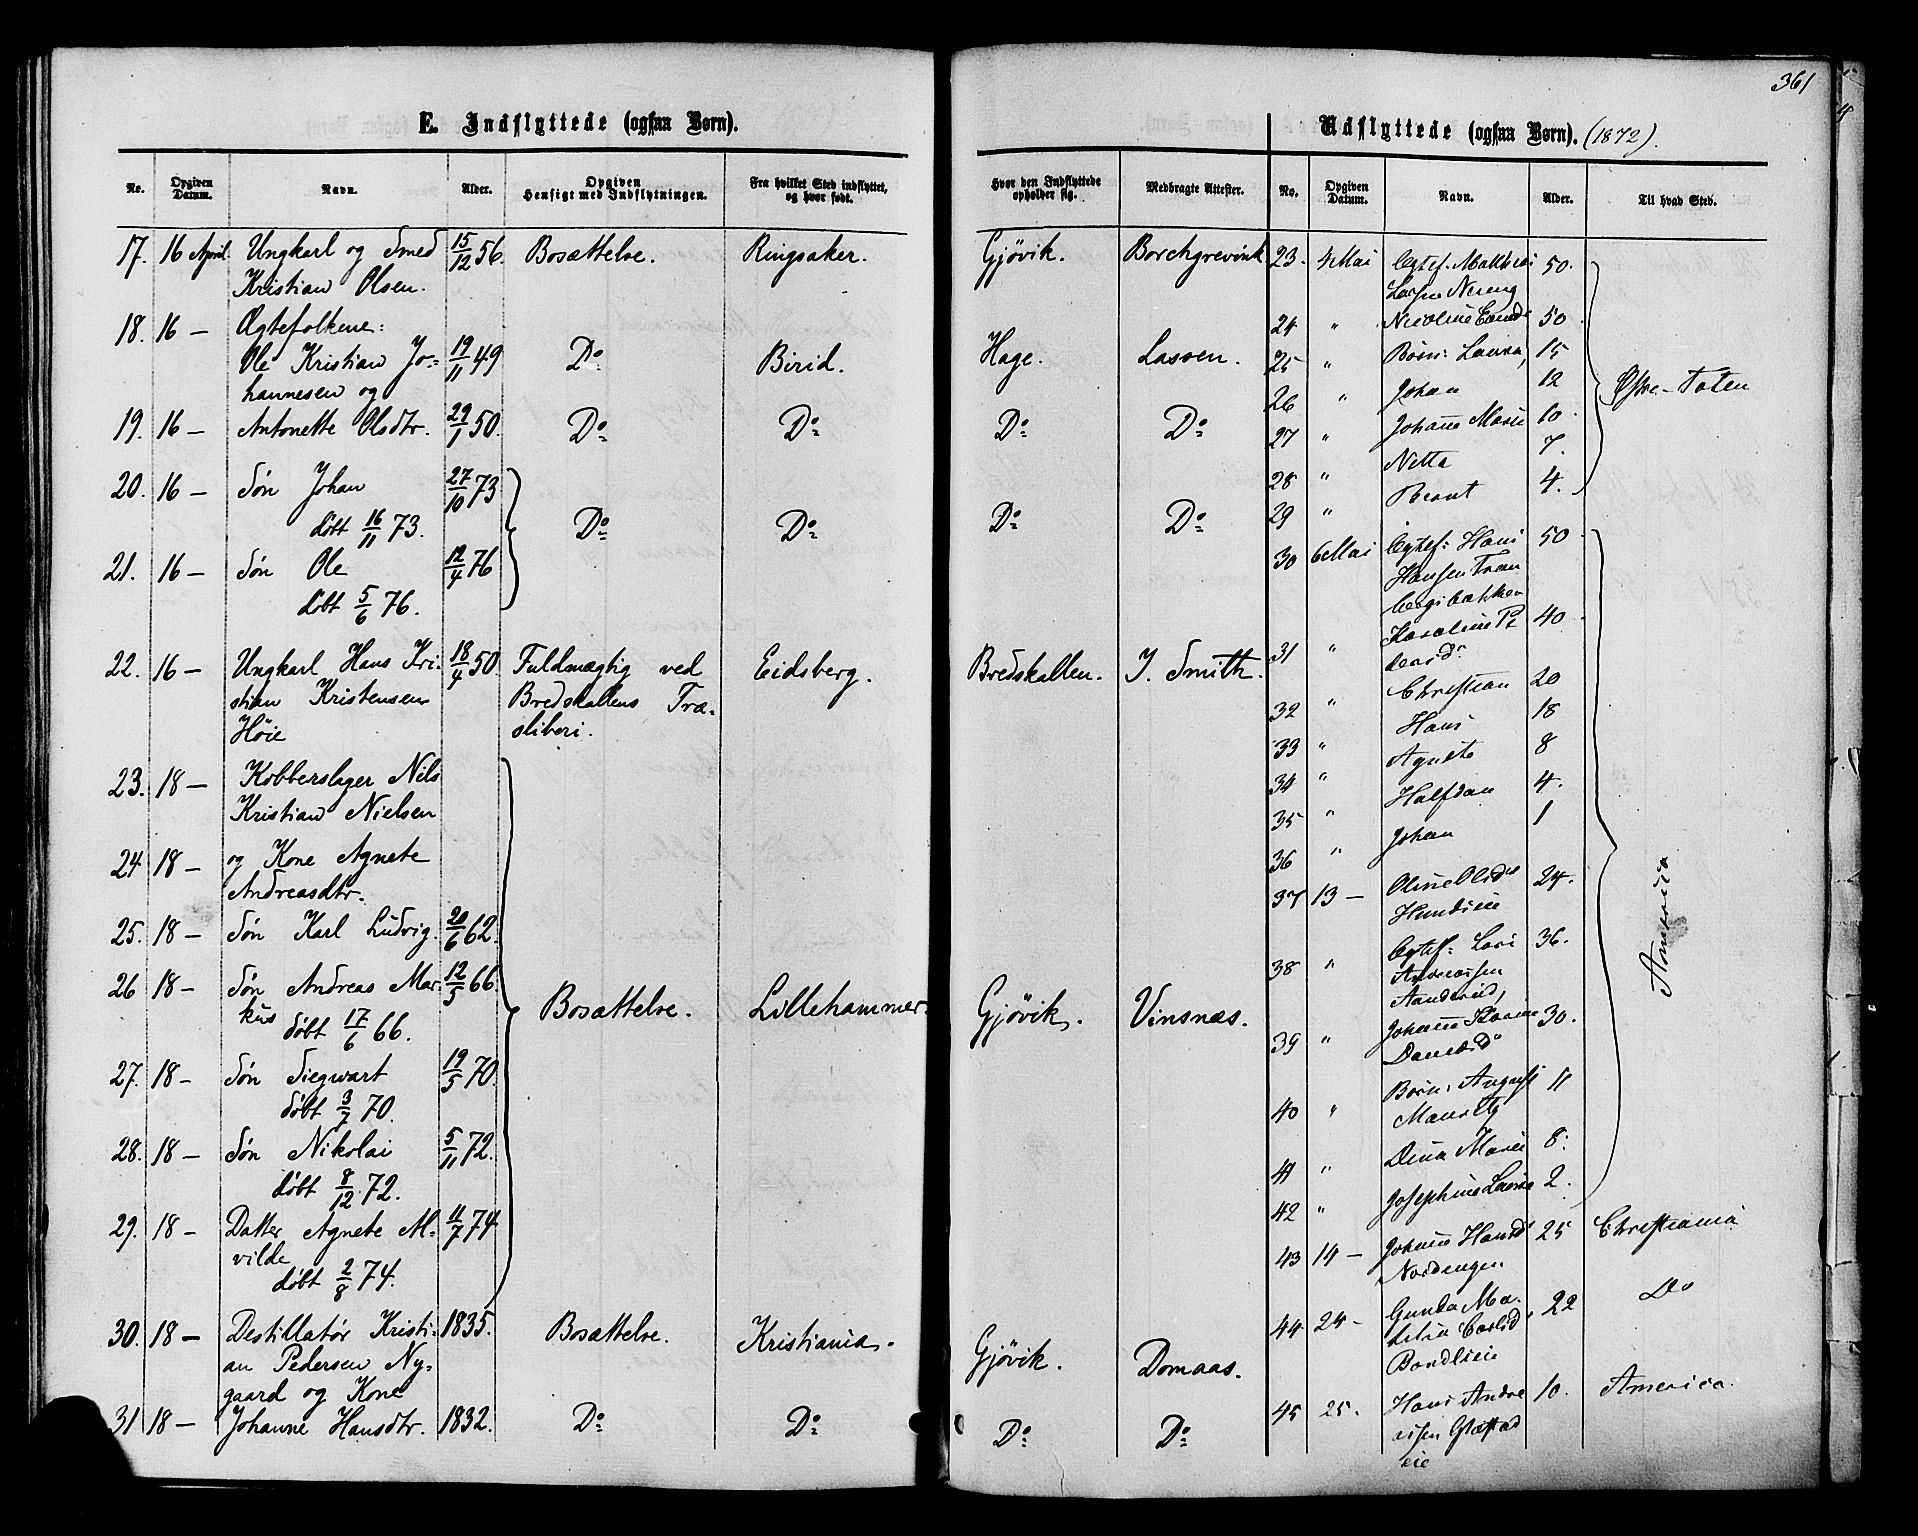 361
E. Indflyttede (ogsaa Børn).
No. Opgiven Datum. Navn. Alder. Opgiven Hensigt med Indflytningen. Fra hvilket Sted indflyttet, og hvor født. Hvor den Indflyttede opholder sig. Medbragte Attester.
17. 16 April Ungkarl og Smed 15/12 56. Bosættelse. Ringsaker. Gjøvik. Borchgrevink
Kristian Olsen.
18. 16 — Ægtefolkene:
Ole Kristian Jo- 19/11 49 Do Birid. Hage. Lassen.
hannesen og
19. 16 — Antonette Olsdtr. 29/1 50. Do Do Do Do
20. 16 — Søn Johan 27/10 73
døbt 16/11 73. Do Do Do Do
21. 16 — Søn Ole 12/4 76
døbt 5/6 76.
22. 16 — Ungkarl Hans Kri- 18/4 50. Fuldmægtig ved Eidsberg. Bredskallen. J. Smith.
stian Kristensen Bredskallens Træ-
Höie sliberi.
23. 18 — Kobberslager Nils
Kristian Nielsen
24 18 — og Kone Agnete
Andreasdtr.
25. 18 — Søn Karl Ludvig. 20/6 62.
26 18 — Søn Andreas Mar- 12/5 66.
kus Bosættelse. Lillehammer. Gjøvik. Vinsnæs.
døbt 17/6 66.
27. 18 — Søn Siegwart 19/5 70.
døbt 3/7 70.
28. 18 — Søn Nikolai 5/11 72.
døbt 8/12 72.
29. 18 — Datter Agnete Al- 11/7 74
vilde
døbt 2/8 74.
30. 18 — Destillatør Kristi- 1835. Bosættelse. Kristiania. Gjøvik. Domaas.
an Pedersen Ny-
gaard og Kone
31 18 — Johanne Hansdtr. 1832. Do Do Do Do
Udflyttede (ogsaa Børn). (1872).
No. Opgiven Datum. Navn. Alder. Til hvad Sted.
23. 4 Mai Ægtef. Mathias 50.
Larsen Nereng
24 " Nicoline 50
25 " Børn: Laura, 15
26 " Johan 12 Østre-Toten
27 " Johanne Marie 10.
28 " Netta 7.
29 " Bernt 4.
30 6 Mai Ægtef: Hans 50
Hansen Tran
bergsbakken
31 " Karoline Pe 40
dersd.
32 " Christian 20
33 " Hans 18
34 " Agnete 8
35 " Halfdan 4.
36 " Johan 1
37 13 — Oline Olsd 24.
America
38 " Ægtef: Lars 36.
Andreassen
39 " Johanne Karine 30.
Danielsd
40 " Børn: August 11
Mauritz
41 " Dina Marie 8.
42 " Josephine Laura 2.
43 14 — Johanne Hansd 25 Christiania
Nordengen
44 24 — Gunda Ma- 22 Do
Carlsd
45 25. Hans Andre 10. America.
asen Glæstad
eie